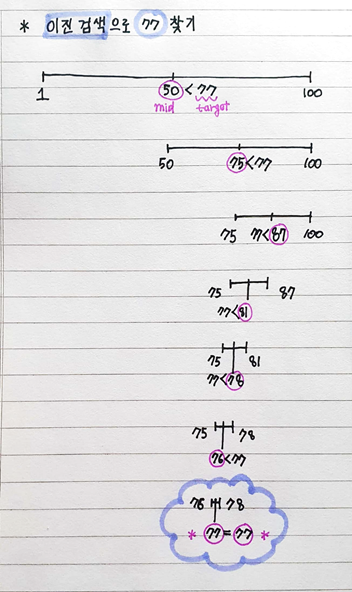 * 이진 검색으로 77 찾기
1 50 < 77 100
mid target
50 75<77 100
75 77<87 100
75 87
77<81
75 81
77<78
75 78
76<77
76 78
* 77 = 77 *